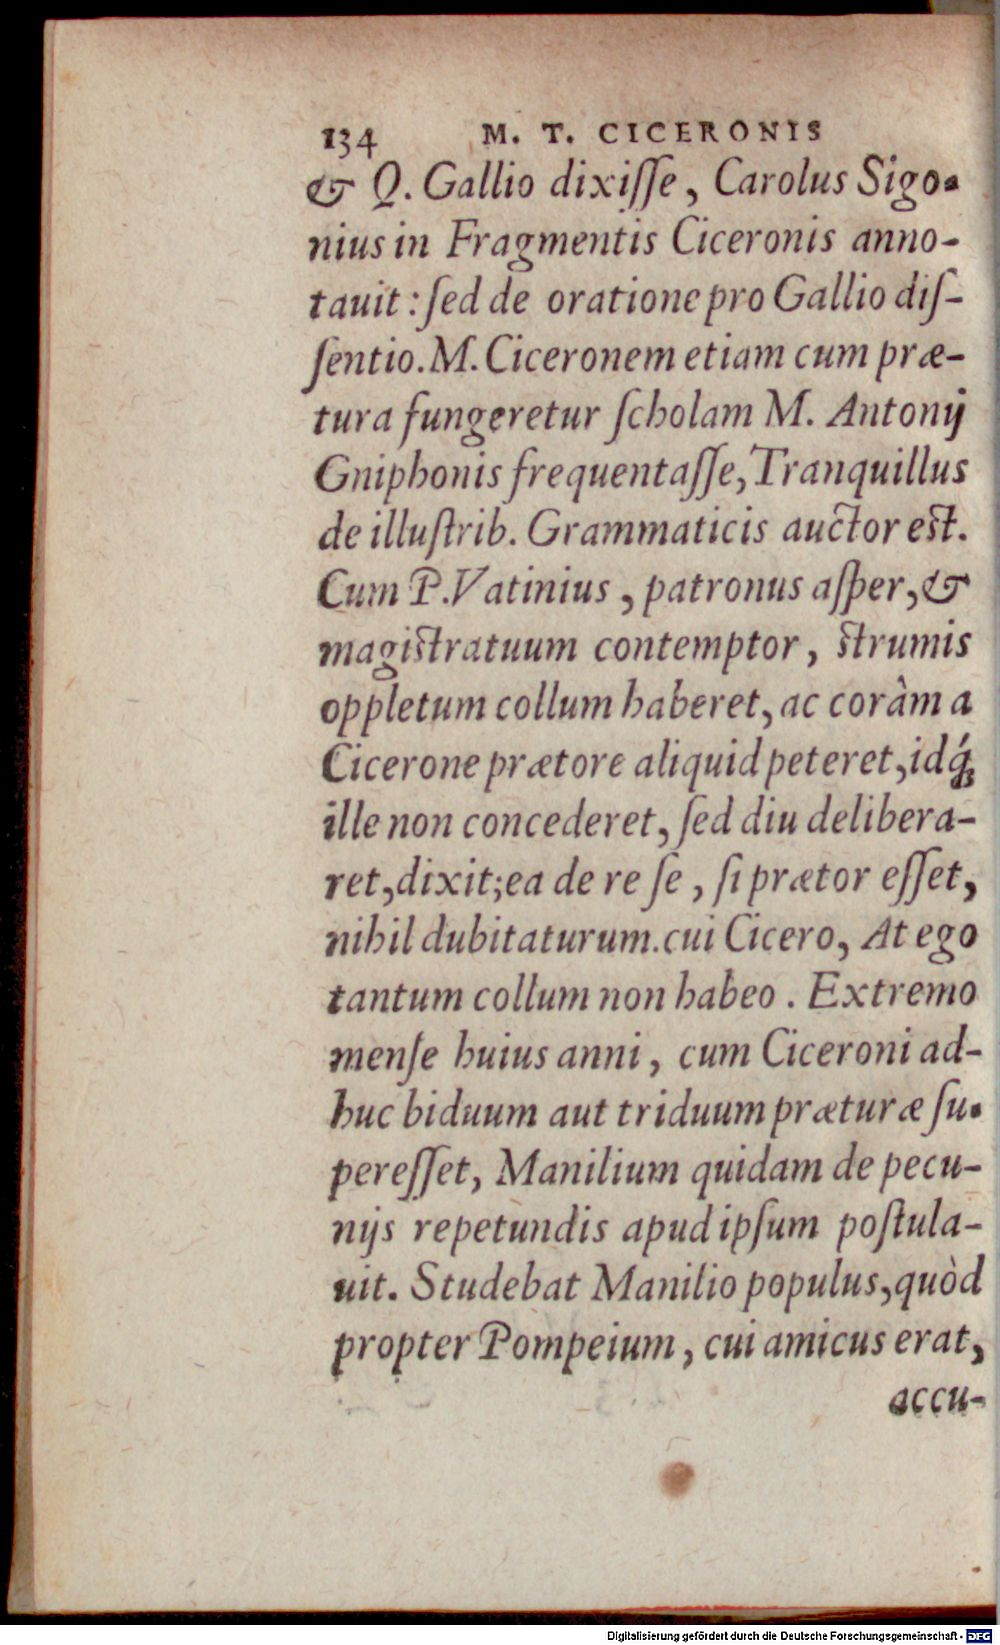 134 M. T. CICERONIS
& Q. Gallio dixiſſe, Carolus Sigo-
nius in Fragmentis Ciceronis anno-
tauit: ſed de oratione pro Gallio diſ-
ſentio. M. Ciceronem etiam cum præ-
tura fungeretur ſcholam M. Antonij
Gniphonis frequentaſſe, Tranquillus
de illuſtrib. Grammaticis auctor eſt.
Cum P. Vatinius, patronus aſper, &
magiſtratuum contemptor, ſtrumis
oppletum collum haberet, ac coràm a
Cicerone prætore aliquid peteret, idq́;
ille non concederet, ſed diu delibera-
ret, dixit; ea de re ſe, ſi prætor eſſet,
nihil dubitaturum. cui Cicero, At ego
tantum collum non habeo. Extremo
menſe huius anni, cum Ciceroni ad-
huc biduum aut triduum præturæ ſu-
pereſſet, Manilium quidam de pecu-
nijs repetundis apud ipſum poſtula-
uit. Studebat Manilio populus, quòd
propter Pompeium, cui amicus erat,
accu-
Digitalisierung gefördert durch die Deutsche Forschungsgemeinschaft - DFG